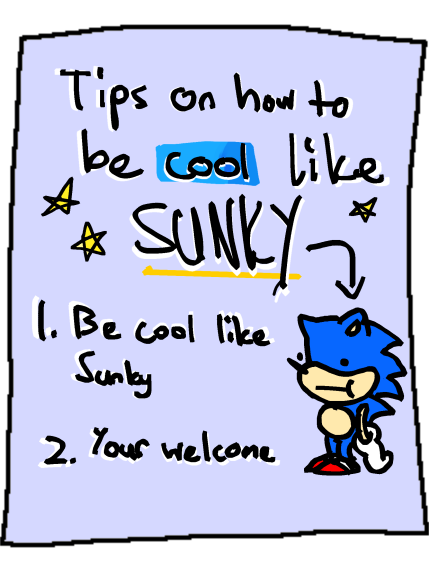 Tips on how to
be cool like
SUNKY
1. Be cool like
Sunky
2. Your welcome